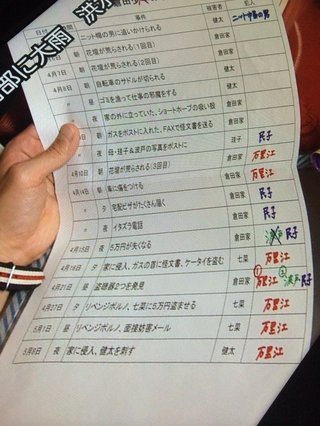 部に大雨 洪水
事件 被害者 犯人
ニット帽の男に追いかけられる 健太 ニット帽の男
4月7日 朝 花壇が荒らされる(1回目) 倉田家
朝 花壇が荒らされる(2回目) 倉田家
〃 朝 自転車のサドルが切られる 健太
〃 昼 ゴミを漁って仕事の邪魔をする 健太
夜 家の外に立っていた、ショートホープの吸い殻 倉田家
朝 ガスをポストに入れた、FAXで怪文書を送る 倉田家
夜 母・珪子&波戸の写真をポストに 珪子 民子
4月10日 朝 花壇が荒らされる(3回目) 倉田家 万里江
4月14日 車に傷をつける 倉田家 万里江
〃 夕 宅配ピザがたくさん届く 倉田家 民子
〃 夜 イタズラ電話 倉田家 民子
4月15日 夜 5万円が失くなる 倉田家 民子
4月16日 夕 家に侵入、ガスの音に怪文書、ケータイを盗む 七菜 万里江
4月21日 昼 盗聴器2つを発見 倉田家 ①万里江 ②波戸 民子
4月27日 夕 リベンジポルノ、七菜に5万円盗ませる 七菜 万里江
5月1日 昼 リベンジポルノ、面接妨害メール 七菜 万里江
5月8日 夜 家に侵入、健太を刺す 健太 万里江